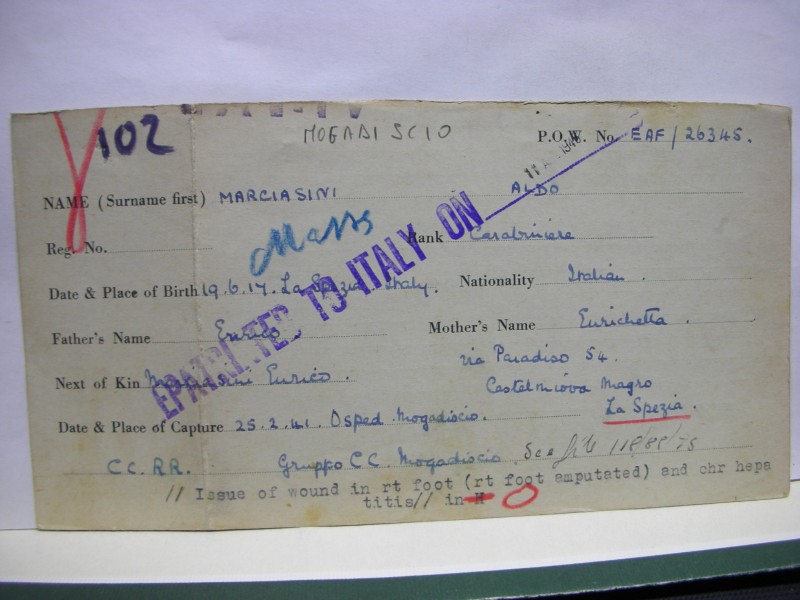 102
MOGADISCIO
P.O.W. No. EAF/26345.
NAME (Surname first) MARCIASINI ALDO
Reg. No.
Rank Carabiniere
Date & Place of Birth 19.6.17. La Spezia Italy.
Nationality Italian.
Father's Name Enrico.
Mother's Name Enrichetta.
Next of Kin Marciasini Enrico.
via Paradiso 54.
Magro
La Spezia.
Date & Place of Capture 25.2.41. Osped. Mogadiscio.
CC.RR. Gruppo CC. Mogadiscio. See file 118/88/75
// Issue of wound in rt foot (rt foot amputated) and chr hepa
titis// in H
EPATRIATED TO ITALY ON